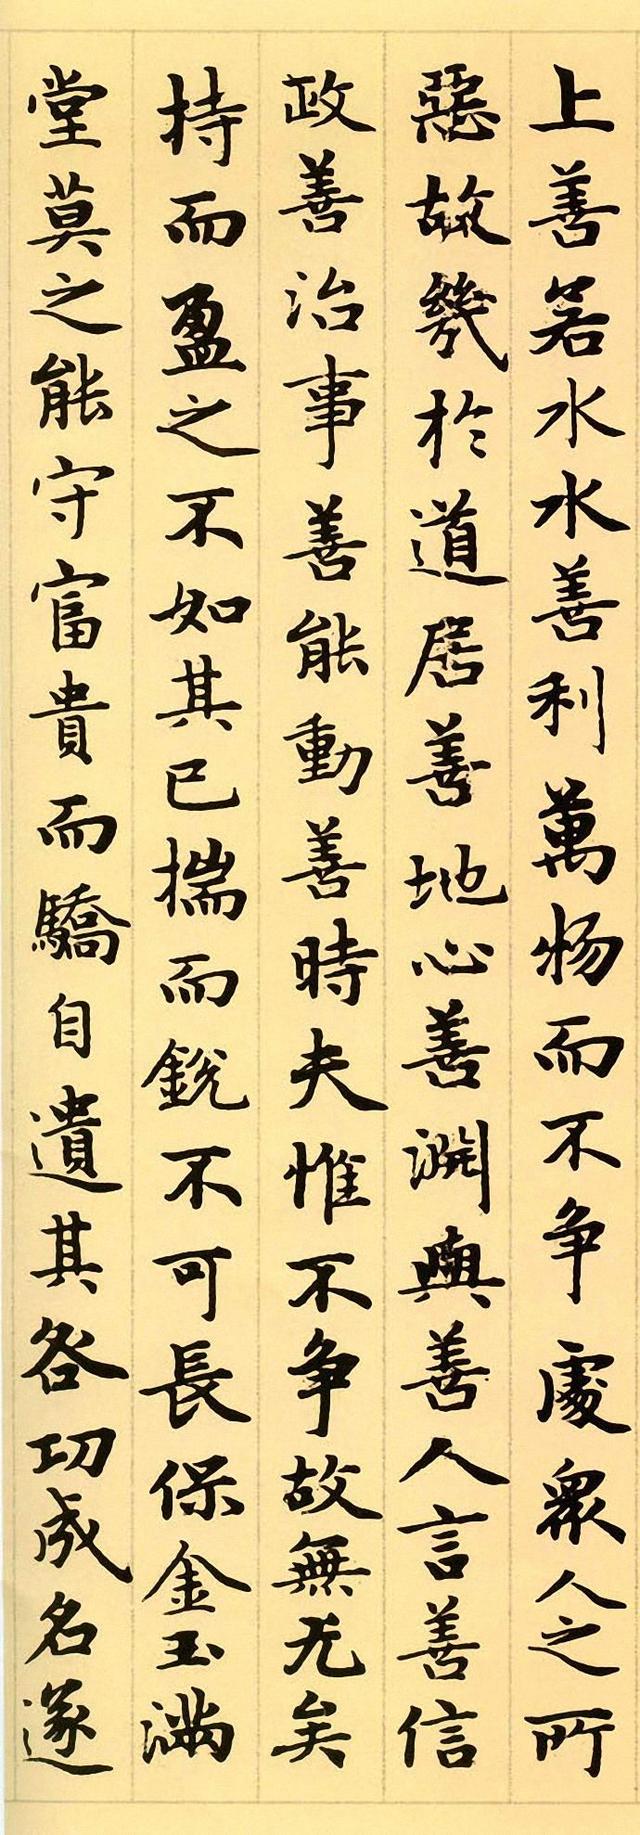 上善若水水善利萬物而不争處衆人之所
惡故幾於道居善地心善淵與善人言善信
政善治事善能動善時夫惟不争故無尤矣
持而盈之不如其已揣而銳不可長保金玉滿
堂莫之能守富貴而驕自遺其咎功成名遂